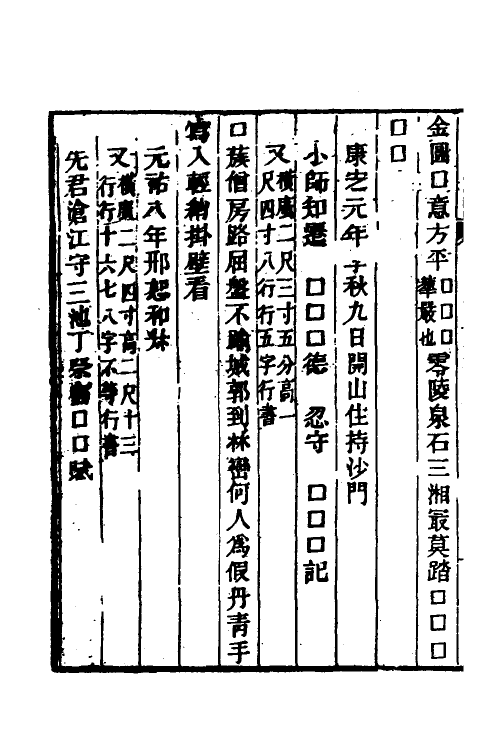 金圖口意方平口口口華嚴也零陵泉石三湘最莫踏口口口
口口
康定元年子秋九日開山住持沙門
小師知遷　口口口德　忍守　口口口記
又橫廣二尺三寸五分高一
尺四寸八行行五字行書
口蔟僧房路屈盤不踰城郭到林巒何人爲假丹青手
寫入輕綃掛壁看
元祐八年邢恕和叔
又橫廣二尺四寸高二尺十三
行行十六七八字不等行書
先君滄江守三池丁
口口賦